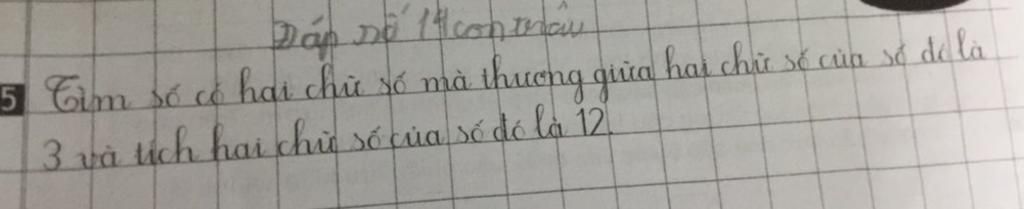 Đáp số 14 con trâu
5 Tìm số có hai chữ số mà thương giữa hai chữ số của số đó là
3 và tích hai chữ số của số đó là 12.